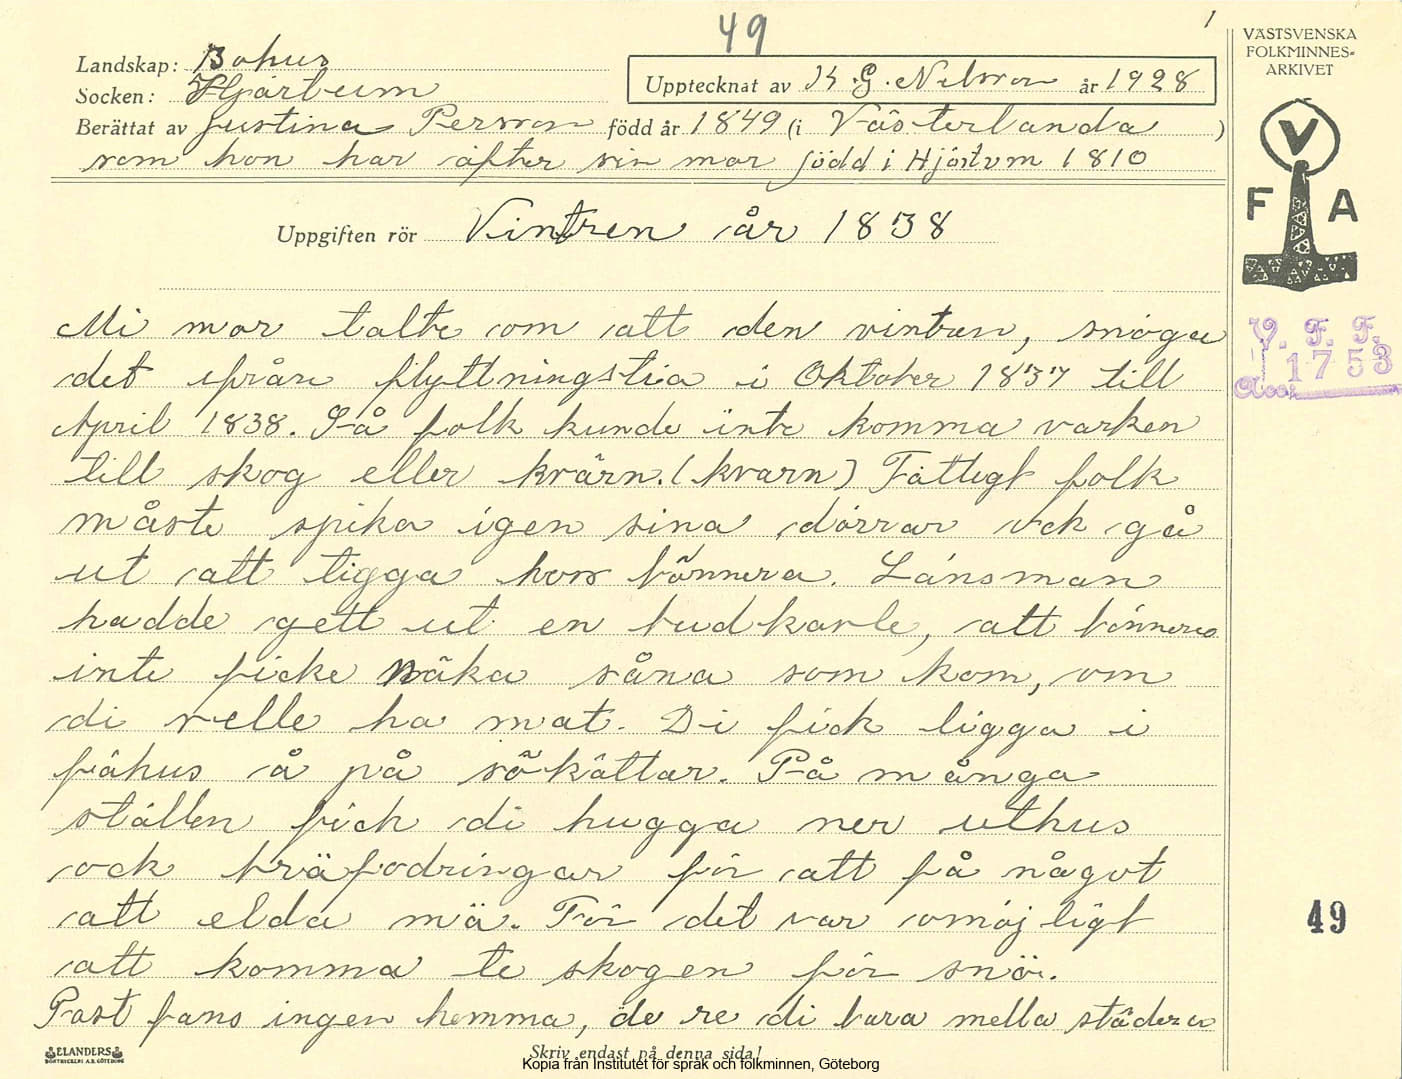 49
1
Landskap: Bohus
Socken: Hjärtum
Upptecknat av K. G. Nilsson år 1928
Berättat av Justina Persson född år 1849 (i Västerlanda )
som hon har äfter sin mor född i Hjärtum 1810
Uppgiften rör Vintren år 1838
VÄSTSVENSKA
FOLKMINNES-
ARKIVET
V
F A
V. F. F.
Acc. 1753
Mi mor talte om att den vintren, snöga
det ifrån flyttningstia i Oktober 1837 till
April 1838. Så folk kunde inte komma varken
till skog eller kvärn. (kvarn) Fattigt folk
måste spika igen sina dörrar ock gå
ut att tigga hos bönnera. Länsman
hadde gett ut en budkavle, att bönnera
inte ficke näka såna som kom, om
di velle ha mat. Di fick ligga i
fähus å på sökättar. På många
ställen fick di hugga ner uthus
ock bräfodringar för att få något
att elda mä. För det var omöjligt
att komma te skogen för snö.
Post fans ingen hemma, de re di bara mella städera
49
ELANDERS
BOKTRYCKERI A.B. GÖTEBORG
Skriv endast på denna sida!
Kopia från Institutet för språk och folkminnen, Göteborg